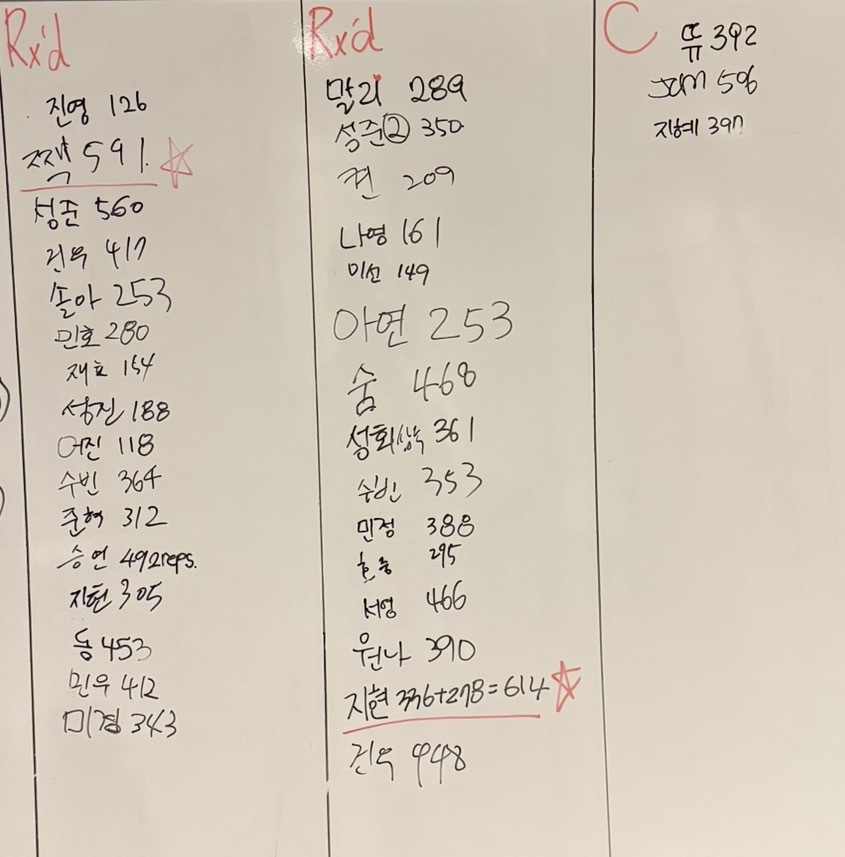 Rx'd
진영 126
쨱 591.
성준 560
건우 417
솔아 253
민호 280
재효 154
성진 188
어진 118
수빈 364
준혁 312
승연 492reps.
지현 305
동 453
민우 412
미경 343
Rx'd
말리 289
성준② 350
켠 209
나영 161
미선 149
아연 253
숨 468
성회 361
수빈 353
민정 388
295
서영 466
원나 390
지현 336+278=614
건우 448
C
뜌 392
JCM 506
지혜 397